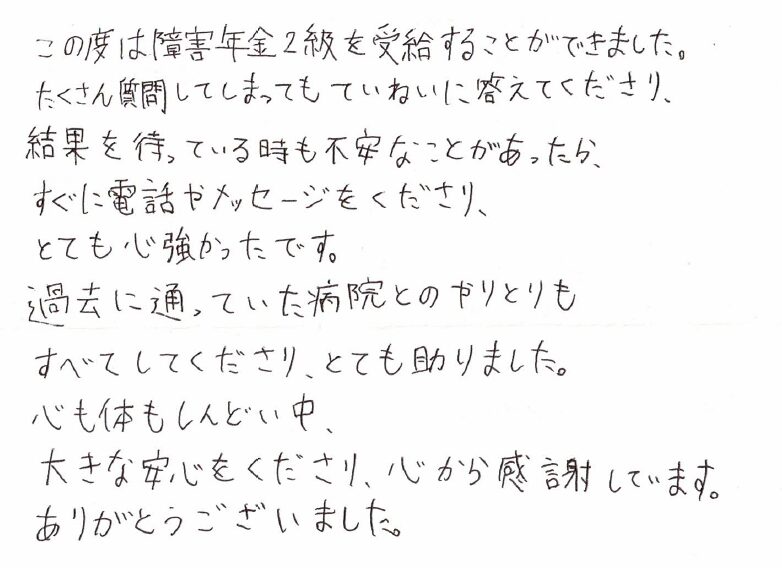 この度は障害年金2級を受給することができました。
たくさん質問してしまってもていねいに答えてくださり、
結果を待っている時も不安なことがあったら、
すぐに電話やメッセージをくださり、
とても心強かったです。
過去に通っていた病院とのやりとりも
すべてしてくださり、とても助りました。
心も体もしんどい中、
大きな安心をくださり、心から感謝しています。
ありがとうございました。